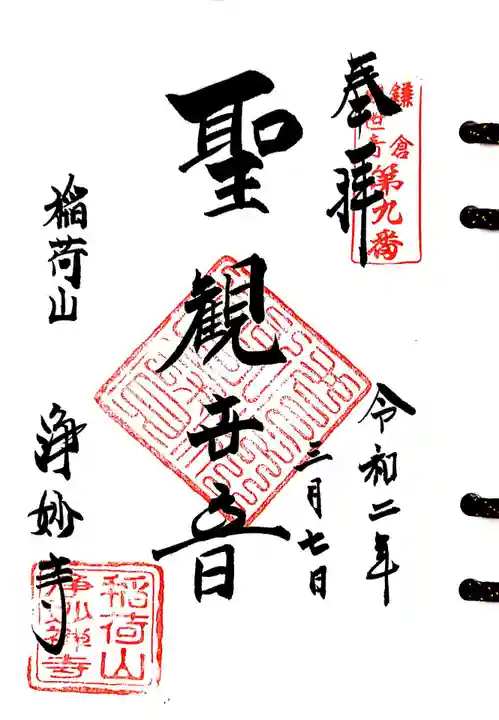 奉拝
鎌倉
観世音
第九番
令和二年
三月七日
聖観世音
稲荷山
浄妙寺
稲荷山
浄妙禅寺